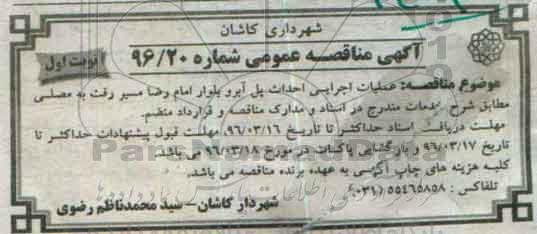 شهرداری کاشان
آگهی مناقصه عمومی شماره ۹۶/۲۰
نوبت اول
موضوع مناقصه: عملیات اجرایی احداث پل آبرو بلوار امام رضا مسیر رفت به مصلی
مطابق شرح خدمات مندرج در اسناد و مدارک مناقصه و قرارداد منضم.
مهلت دریافت اسناد حداکثر تا تاریخ ۹۶/۰۳/۱۶، مهلت قبول پیشنهادات حداکثر تا
تاریخ ۹۶/۰۳/۱۷ و بازگشایی پاکات در مورخ ۹۶/۰۳/۱۸ می باشد.
کلیه هزینه های چاپ آگهی به عهده برنده مناقصه می باشد.
تلفاکس: ۵۵۴۶۵۸۵۸ (۰۳۱)
شهردار کاشان - سید محمدناظم رضوی